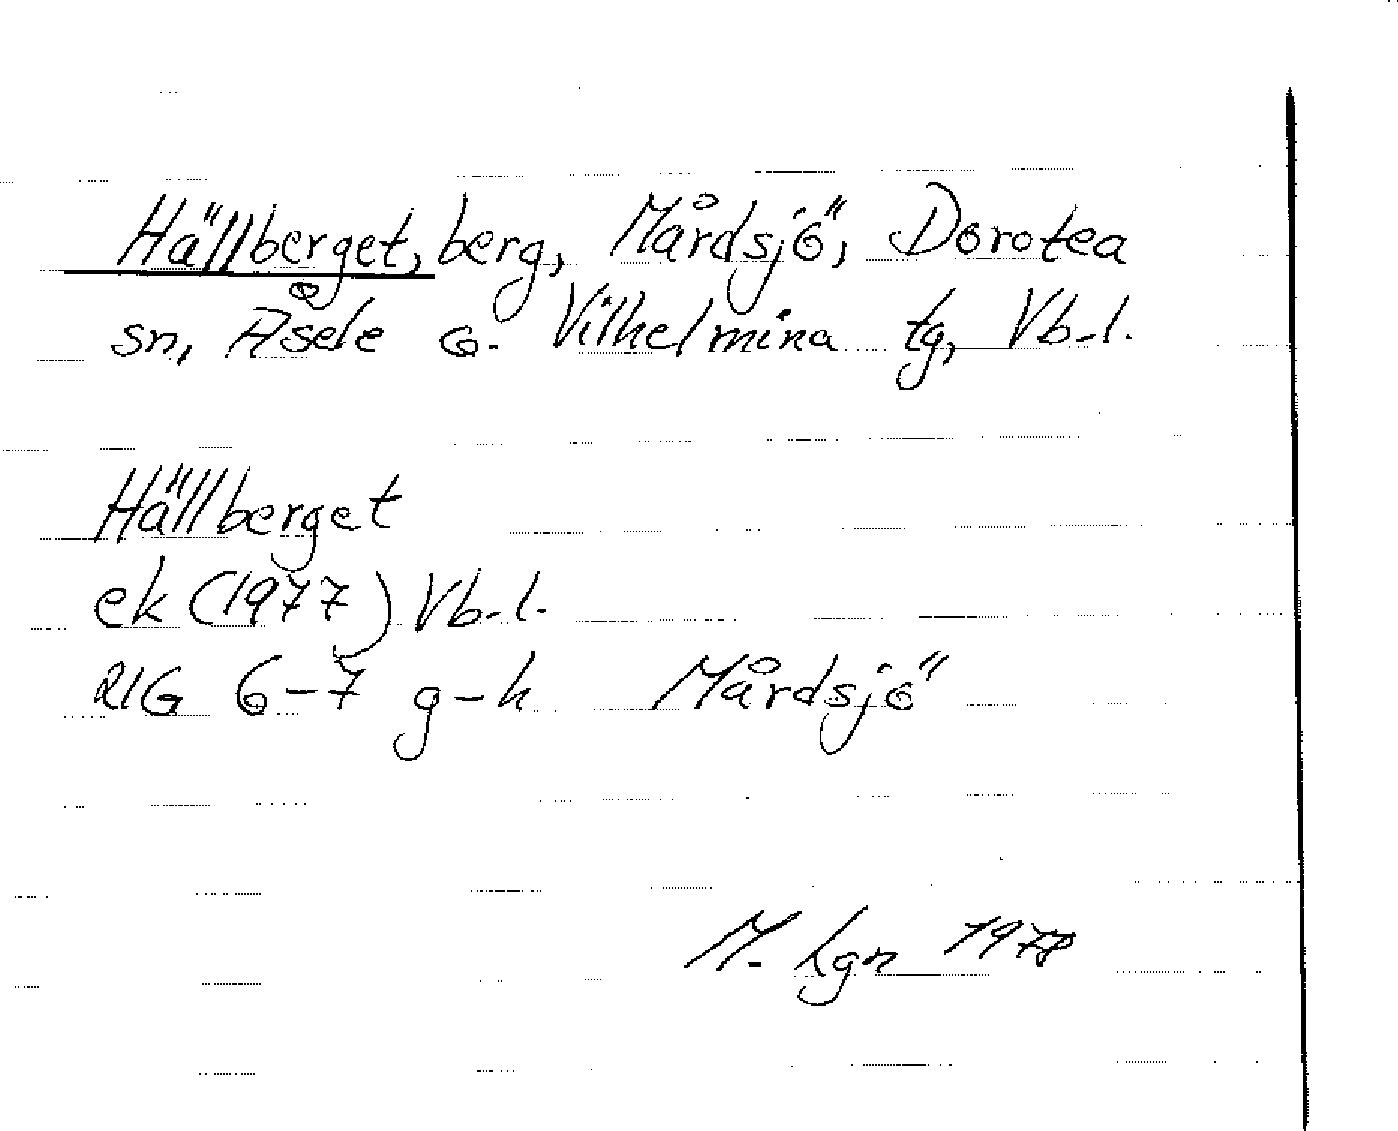 Hällberget, berg, Mårdsjö, Dorotea
sn, Åsele o. Vilhelmina tg, Vb-l.
Hällberget
ek (1977) Vb-l.
21G 6-7 g-h Mårdsjö
M. Lgn 1978